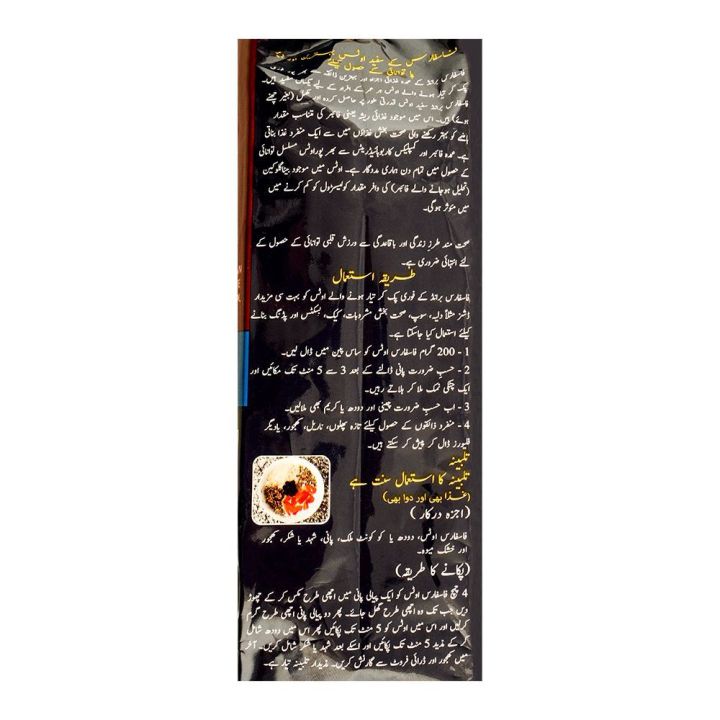 فاسفارس کے سفید اوٹس
توانائی کے حصول کیلئے
فاسفارس برانڈ کے عمدہ غذائی اجزاء اور بہترین ذائقہ سے بھر پور
پک کر تیار ہونے والے اوٹس ہر عمر کے افراد کے لیے یکساں مفید ہیں۔
فاسفارس برانڈ سفید اوٹس قدرتی طور پر حاصل کردہ اور مکمل (بغیر چھنے
ہوئے) ہیں۔ اس میں موجود غذائی ریشہ یعنی فائبر کی متناسب مقدار
اسے کو بہتر رکھنے والی صحت بخش غذاؤں میں سے ایک منفرد غذا بناتی
ہے۔ عمدہ فائبر اور کمپلیکس کاربوہائیڈریٹس سے بھر پور اوٹس مسلسل توانائی
کے حصول میں تمام دن ہماری مددگار ہے۔ اوٹس میں موجود بیٹاگلوکین
(تحلیل ہوجانے والے فائبر) کی وافر مقدار کولیسٹرول کو کم کرنے میں
میں مؤثر ہوگی۔
صحت مند طرز زندگی اور باقاعدگی سے ورزش قلبی توانائی کے حصول کے
لئے انتہائی ضروری ہے۔
طریقہ استعمال
فاسفارس برانڈ کے فوری پک کر تیار ہونے والے اوٹس کو بہت سی مزیدار
ڈشز مثلاً دلیہ، سوپ، صحت بخش مشروبات، کیک، بسکٹس اور پڈنگ بنانے
کیلئے استعمال کیا جاسکتا ہے۔
1 - 200 گرام فاسفارس اوٹس کو ساس پین میں ڈال لیں۔
2 - حسب ضرورت پانی ڈالنے کے بعد 3 سے 5 منٹ تک پکائیں اور
ایک چٹکی نمک ملا کر ہلاتے رہیں۔
3 - اب حسب ضرورت چینی اور دودھ یا کریم بھی ملالیں۔
4 - منفرد ذائقوں کے حصول کیلئے تازہ پھلوں، ناریل، کھجور، یادیگر
فلیورز ڈال کر پیش کر سکتے ہیں۔
تلبینہ
تلبینہ کا استعمال سنت ہے
(غذا بھی اور دوا بھی)
(اجزہ درکار)
فاسفارس اوٹس، دودھ یا کو کونٹ ملک، پانی، شہد یا شکر، کھجور
اور خشک میوہ۔
(پکانے کا طریقہ)
4 چمچ فاسفارس اوٹس کو ایک پیالی پانی میں اچھی طرح مکس کر کے چھوڑ
دیں جب تک وہ اچھی طرح گھل جائے۔ پھر دو پیالی پانی اچھی طرح گرم
کرلیں اور اس میں اوٹس کو 5 منٹ تک پکائیں پھر اس میں دودھ شامل
کر کے مزید 5 منٹ تک پکائیں اور اسکے بعد شہد یا شکر شامل کریں۔ آخر
میں کھجور اور ڈرائی فروٹ سے گارنش کریں۔ مذیدار تلبینہ تیار ہے۔